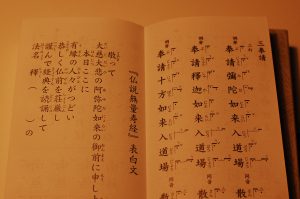 三奉請
奉請彌陀如来入道場
同音
散
奉請釈迦如来入道場
同音
散
奉請十方如来入道場
『仏説無量寿経』表白文
敬って
大慈大悲の阿弥陀如来の御前に申し上
本日ここに
有縁の人々がつどい
恭しく仏前を荘厳し
謹んで経典を読誦して
法名 釋( )の